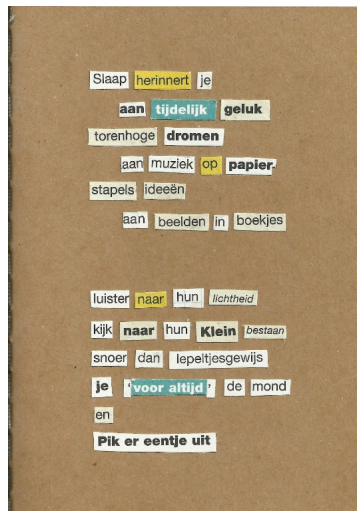 Slaap herinnert je
aan tijdelijk geluk
torenhoge dromen
aan muziek op papier.
stapels ideeën
aan beelden in boekjes
luister naar hun lichtheid
kijk naar hun Klein bestaan
snoer dan lepeltjesgewijs
je 'voor altijd' de mond
en
Pik er eentje uit